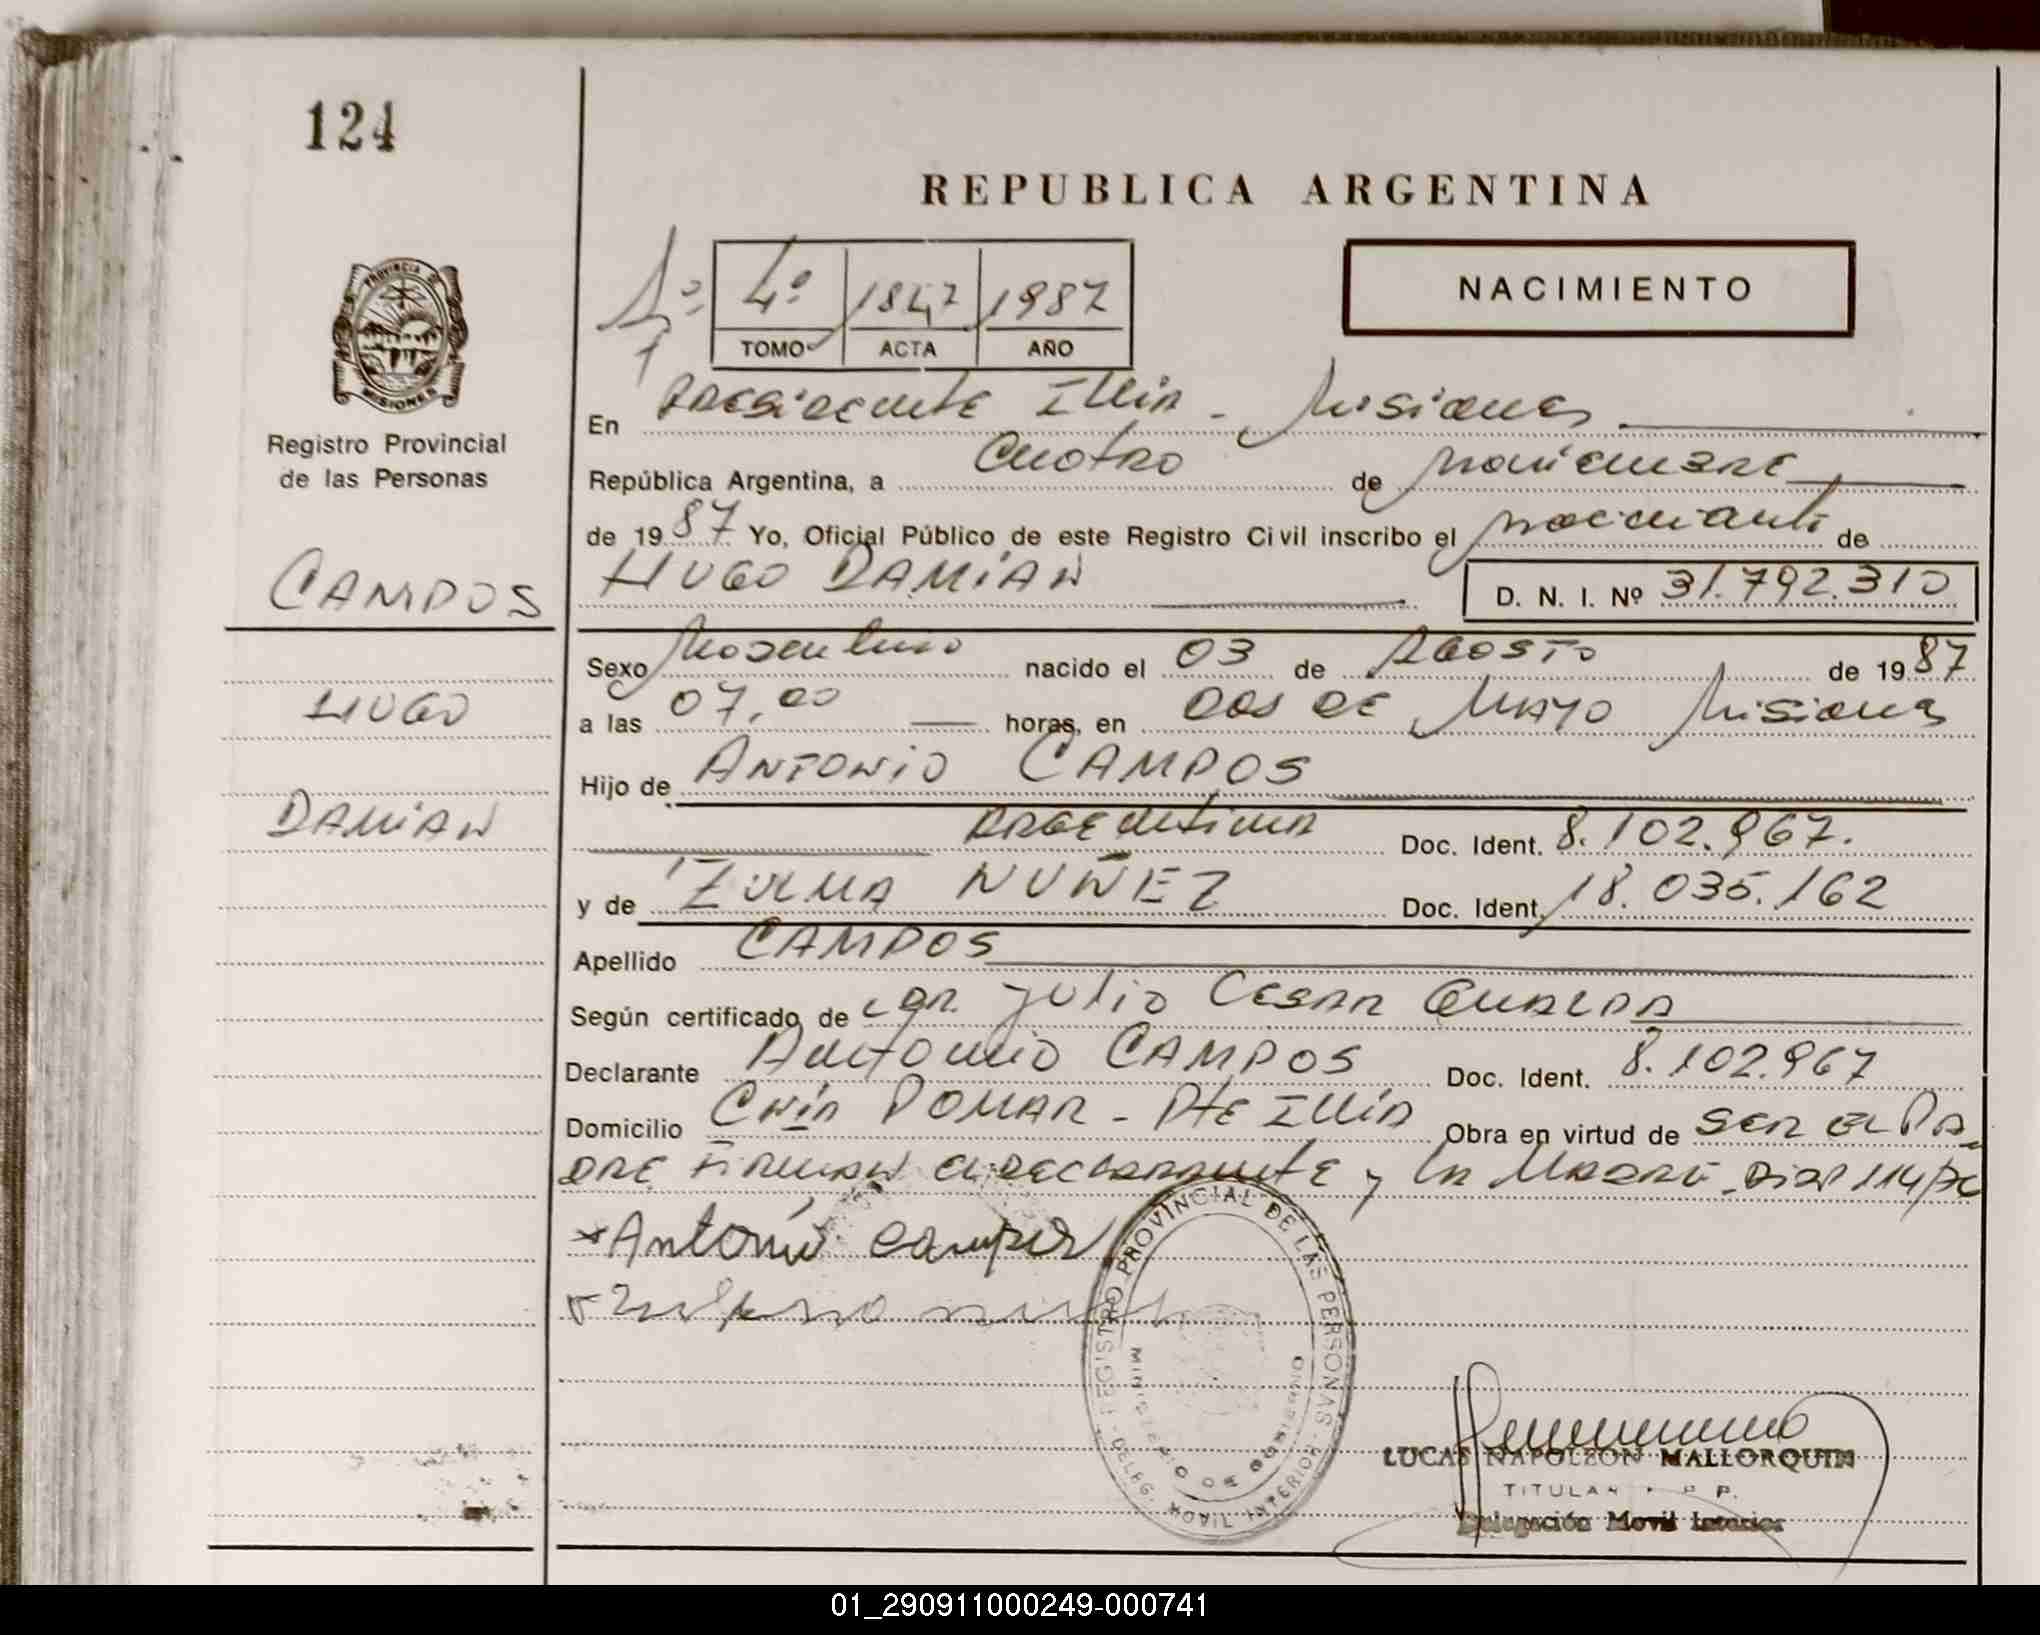 124
REPUBLICA ARGENTINA
PROVINCIA DE
MISIONES
Registro Provincial
de las Personas
1º
4º 1847 1987
TOMO ACTA AÑO
NACIMIENTO
En Presidente Illia - Misiones
República Argentina, a Cuatro de noviembre
de 1987 Yo, Oficial Público de este Registro Civil inscribo el nacimiento de
CAMPOS
HUGO DAMIAN D. N. I. Nº 31.792.310
Sexo Masculino nacido el 03 de Agosto de 1987
HUGO
a las 07,00 horas, en DOS DE MAYO Misiones
Hijo de ANTONIO CAMPOS
DAMIAN
Argentina Doc. Ident. 8.102.967.
y de ZULMA NUÑEZ Doc. Ident. 18.035.162
Apellido CAMPOS
Según certificado de Dr. Julio Cesar
Declarante Antonio CAMPOS Doc. Ident. 8.102.967
Domicilio Cnia POMAR - Pte Illia Obra en virtud de ser el Pa-
dre Firman el declarante y la Madre
x Antonio Campos
REGISTRO PROVINCIAL DE LAS PERSONAS
MINISTERIO DE GOBIERNO
DELEG. MOVIL INTERIOR
LUCAS NAPOLEON MALLORQUIN
TITULAR
Delegación Movil Interior
01_290911000249-000741